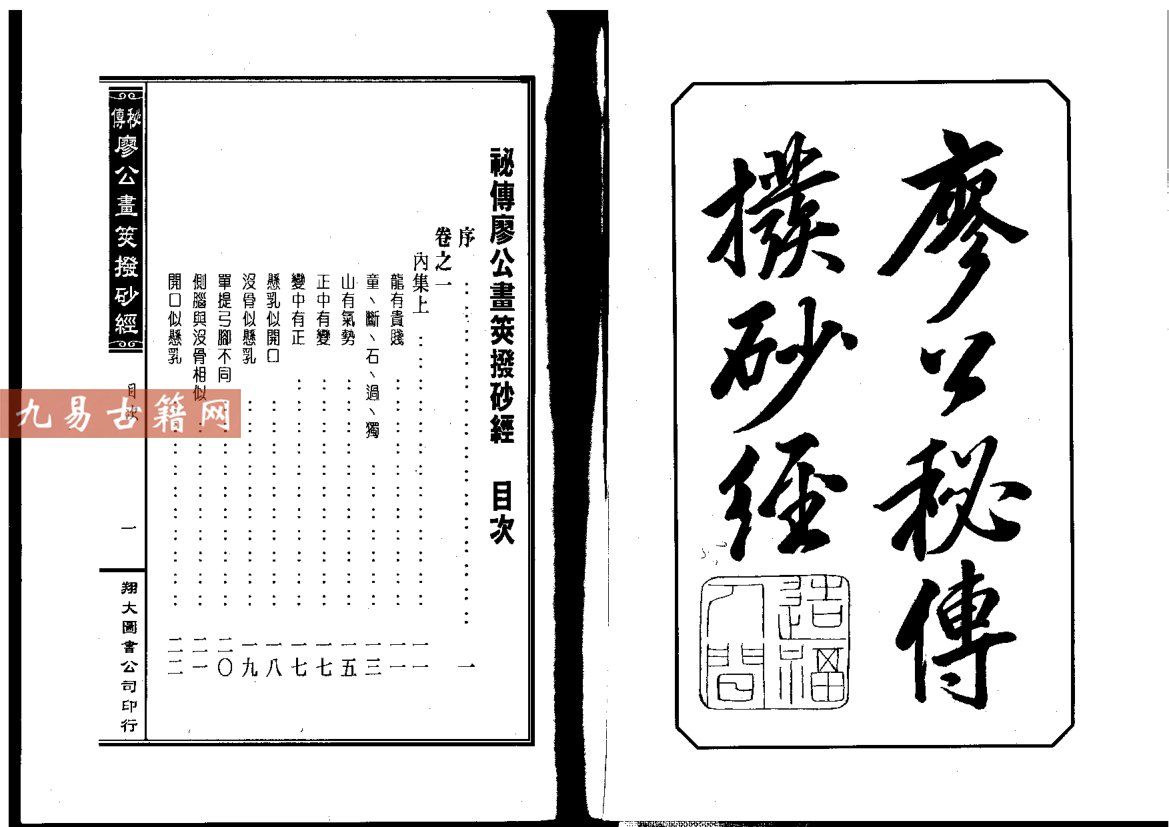 廖公秘傳
撥砂經
造福
人間
祕傳廖公畫筴撥砂經 目次
序……一
卷之一
內集上……一一
龍有貴賤……一一
童、斷、石、過、獨……一三
山有氣勢……一五
正中有變……一七
變中有正……一七
懸乳似開口……一八
沒骨似懸乳……一九
單提弓腳不同……二〇
側腦與沒骨相似……二一
開口似懸乳……二二
秘傳廖公畫筴撥砂經
目次
一
翔大圖書公司印行
九易古籍网